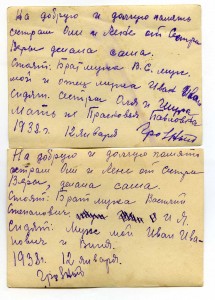 На добрую и долгую память
сестрам Оле и Лене от сестры
Веры делала сама.
Стоят: Брат мужа В.С. муж
мой и отец мужа Иван
сидят сестра Оля и
Мать их Прасковья Павловна
1938 г. 12 января
На добрую и долгую память
сестрам Оле и Лене от сестры
Веры, делала сама.
Стоят: Брат мужа Василий
Степанович и Я.
сидят: Муж мой Иван Ива-
нович и
1938 г. 12 января.
Грозный